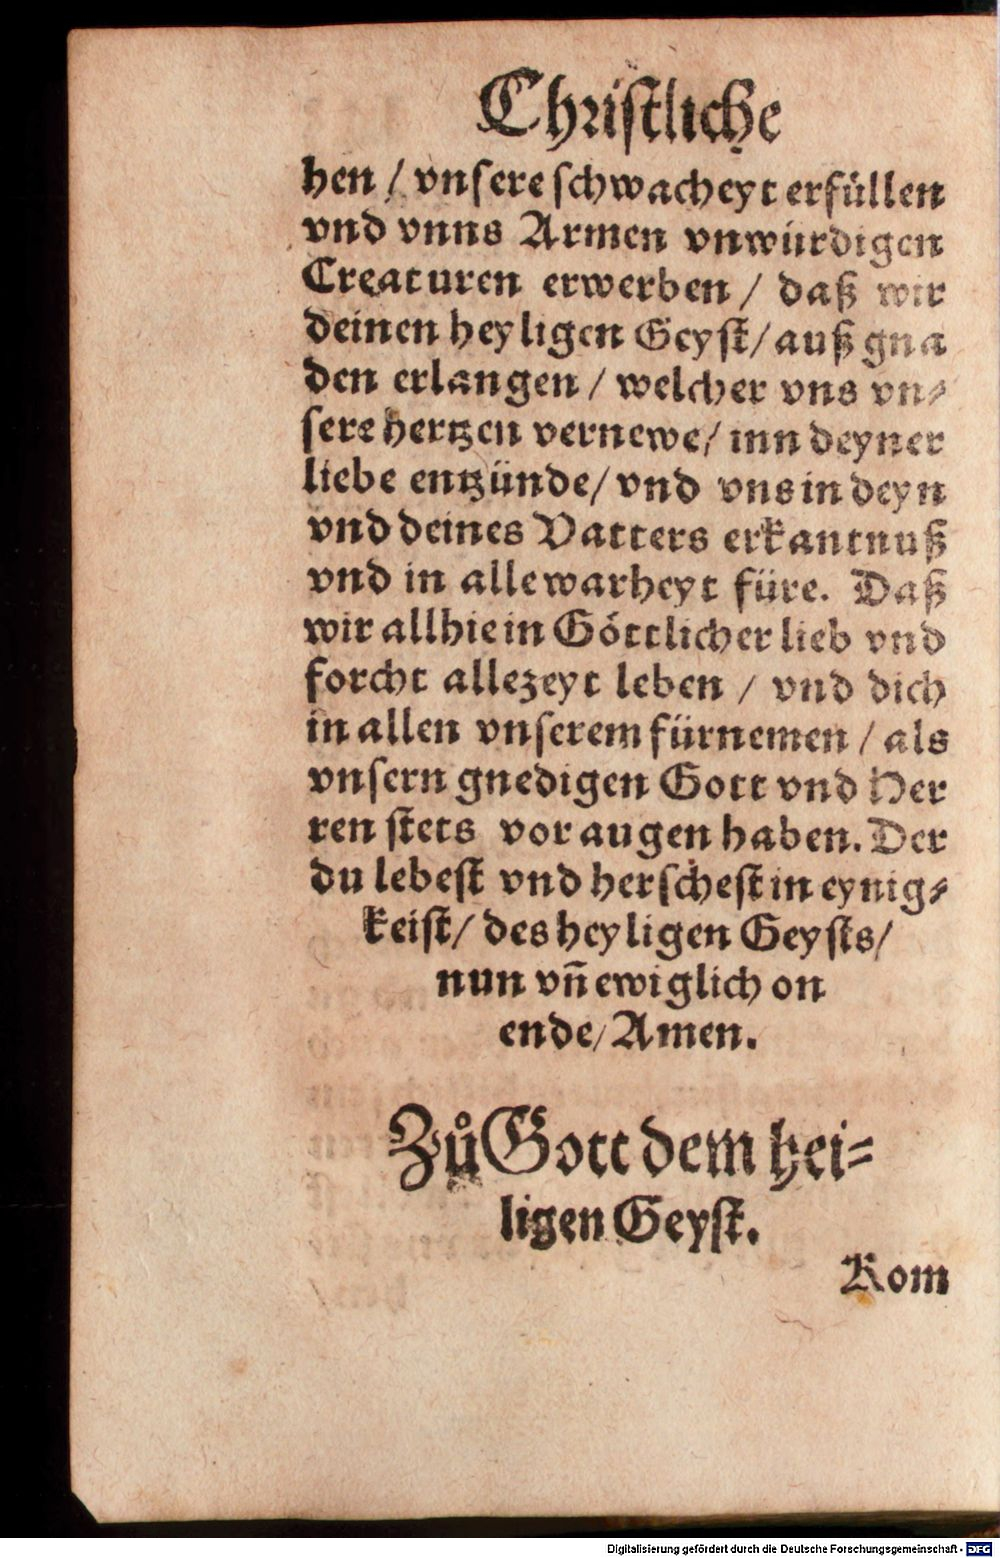 Christliche
hen / vnsere schwacheyt erfüllen
vnd vnns Armen vnwürdigen
Creaturen erwerben / daß wir
deinen heyligen Geyst / auß gna
den erlangen / welcher vns vn⸗
sere hertzen vernewe / inn deyner
liebe entzünde / vnd vns in deyn
vnd deines Vatters erkantnuß
vnd in alle warheyt füre. Daß
wir allhie in Göttlicher lieb vnd
forcht allezeyt leben / vnd dich
in allen vnserem fürnemen / als
vnsern gnedigen Gott vnd Her
ren stets vor augen haben. Der
du lebest vnd herschest in eynig⸗
keist / des heyligen Geysts /
nun vñ ewiglich on
ende / Amen.
Zů Gott dem hei⸗
ligen Geyst.
Kom
Digitalisierung gefördert durch die Deutsche Forschungsgemeinschaft - DFG